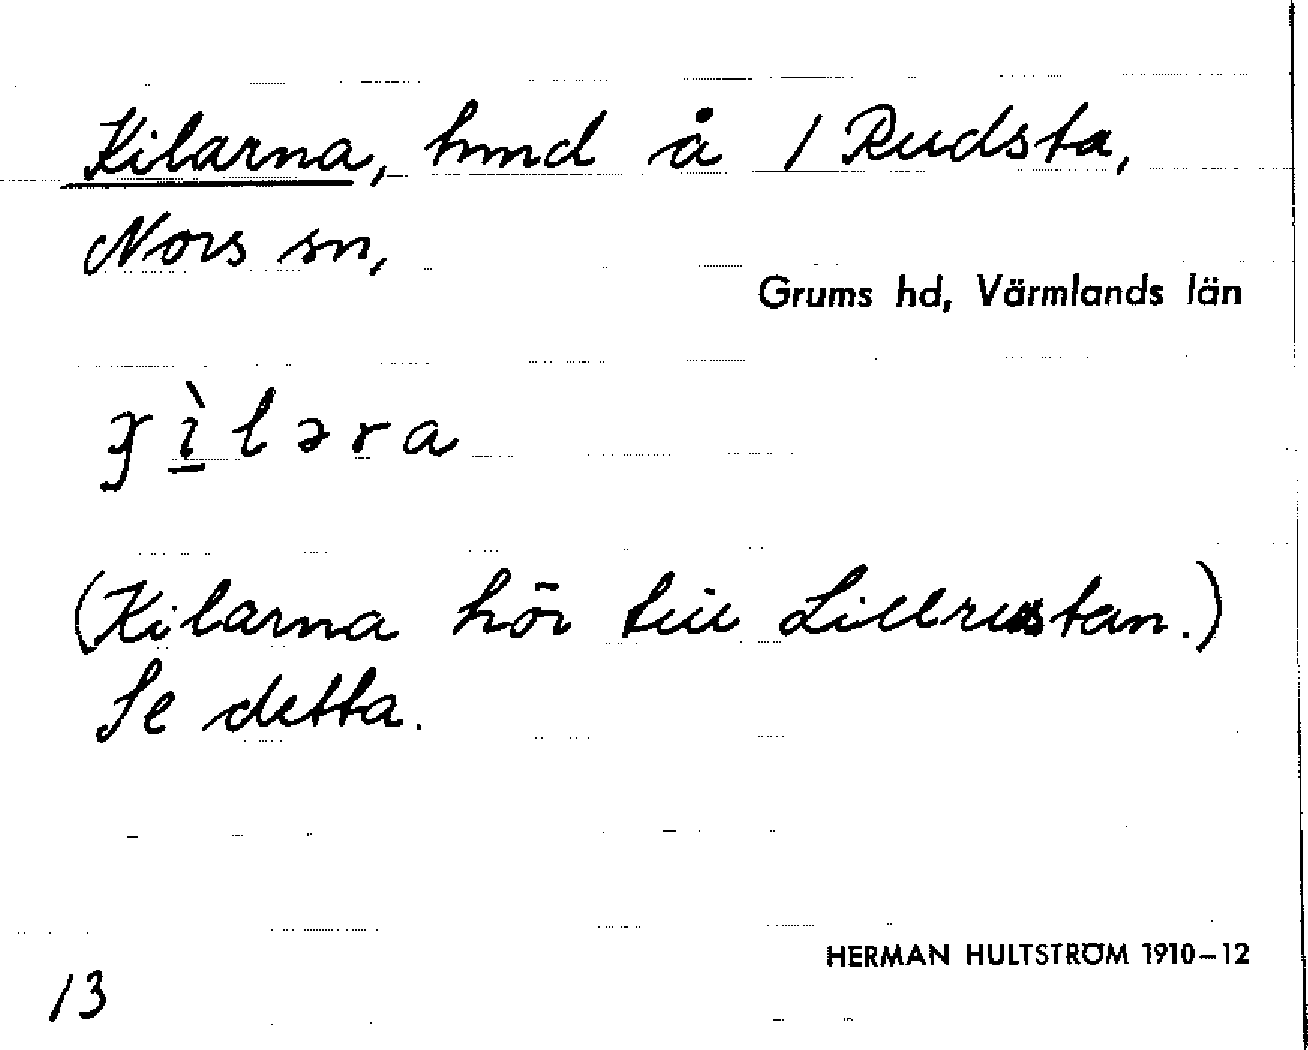 Kilarna, hmd å 1 Rudsta,
Nors sn,
Grums hd, Värmlands län
(Kilarna hör till Lillrustan.)
Se detta.
HERMAN HULTSTRÖM 1910–12
13